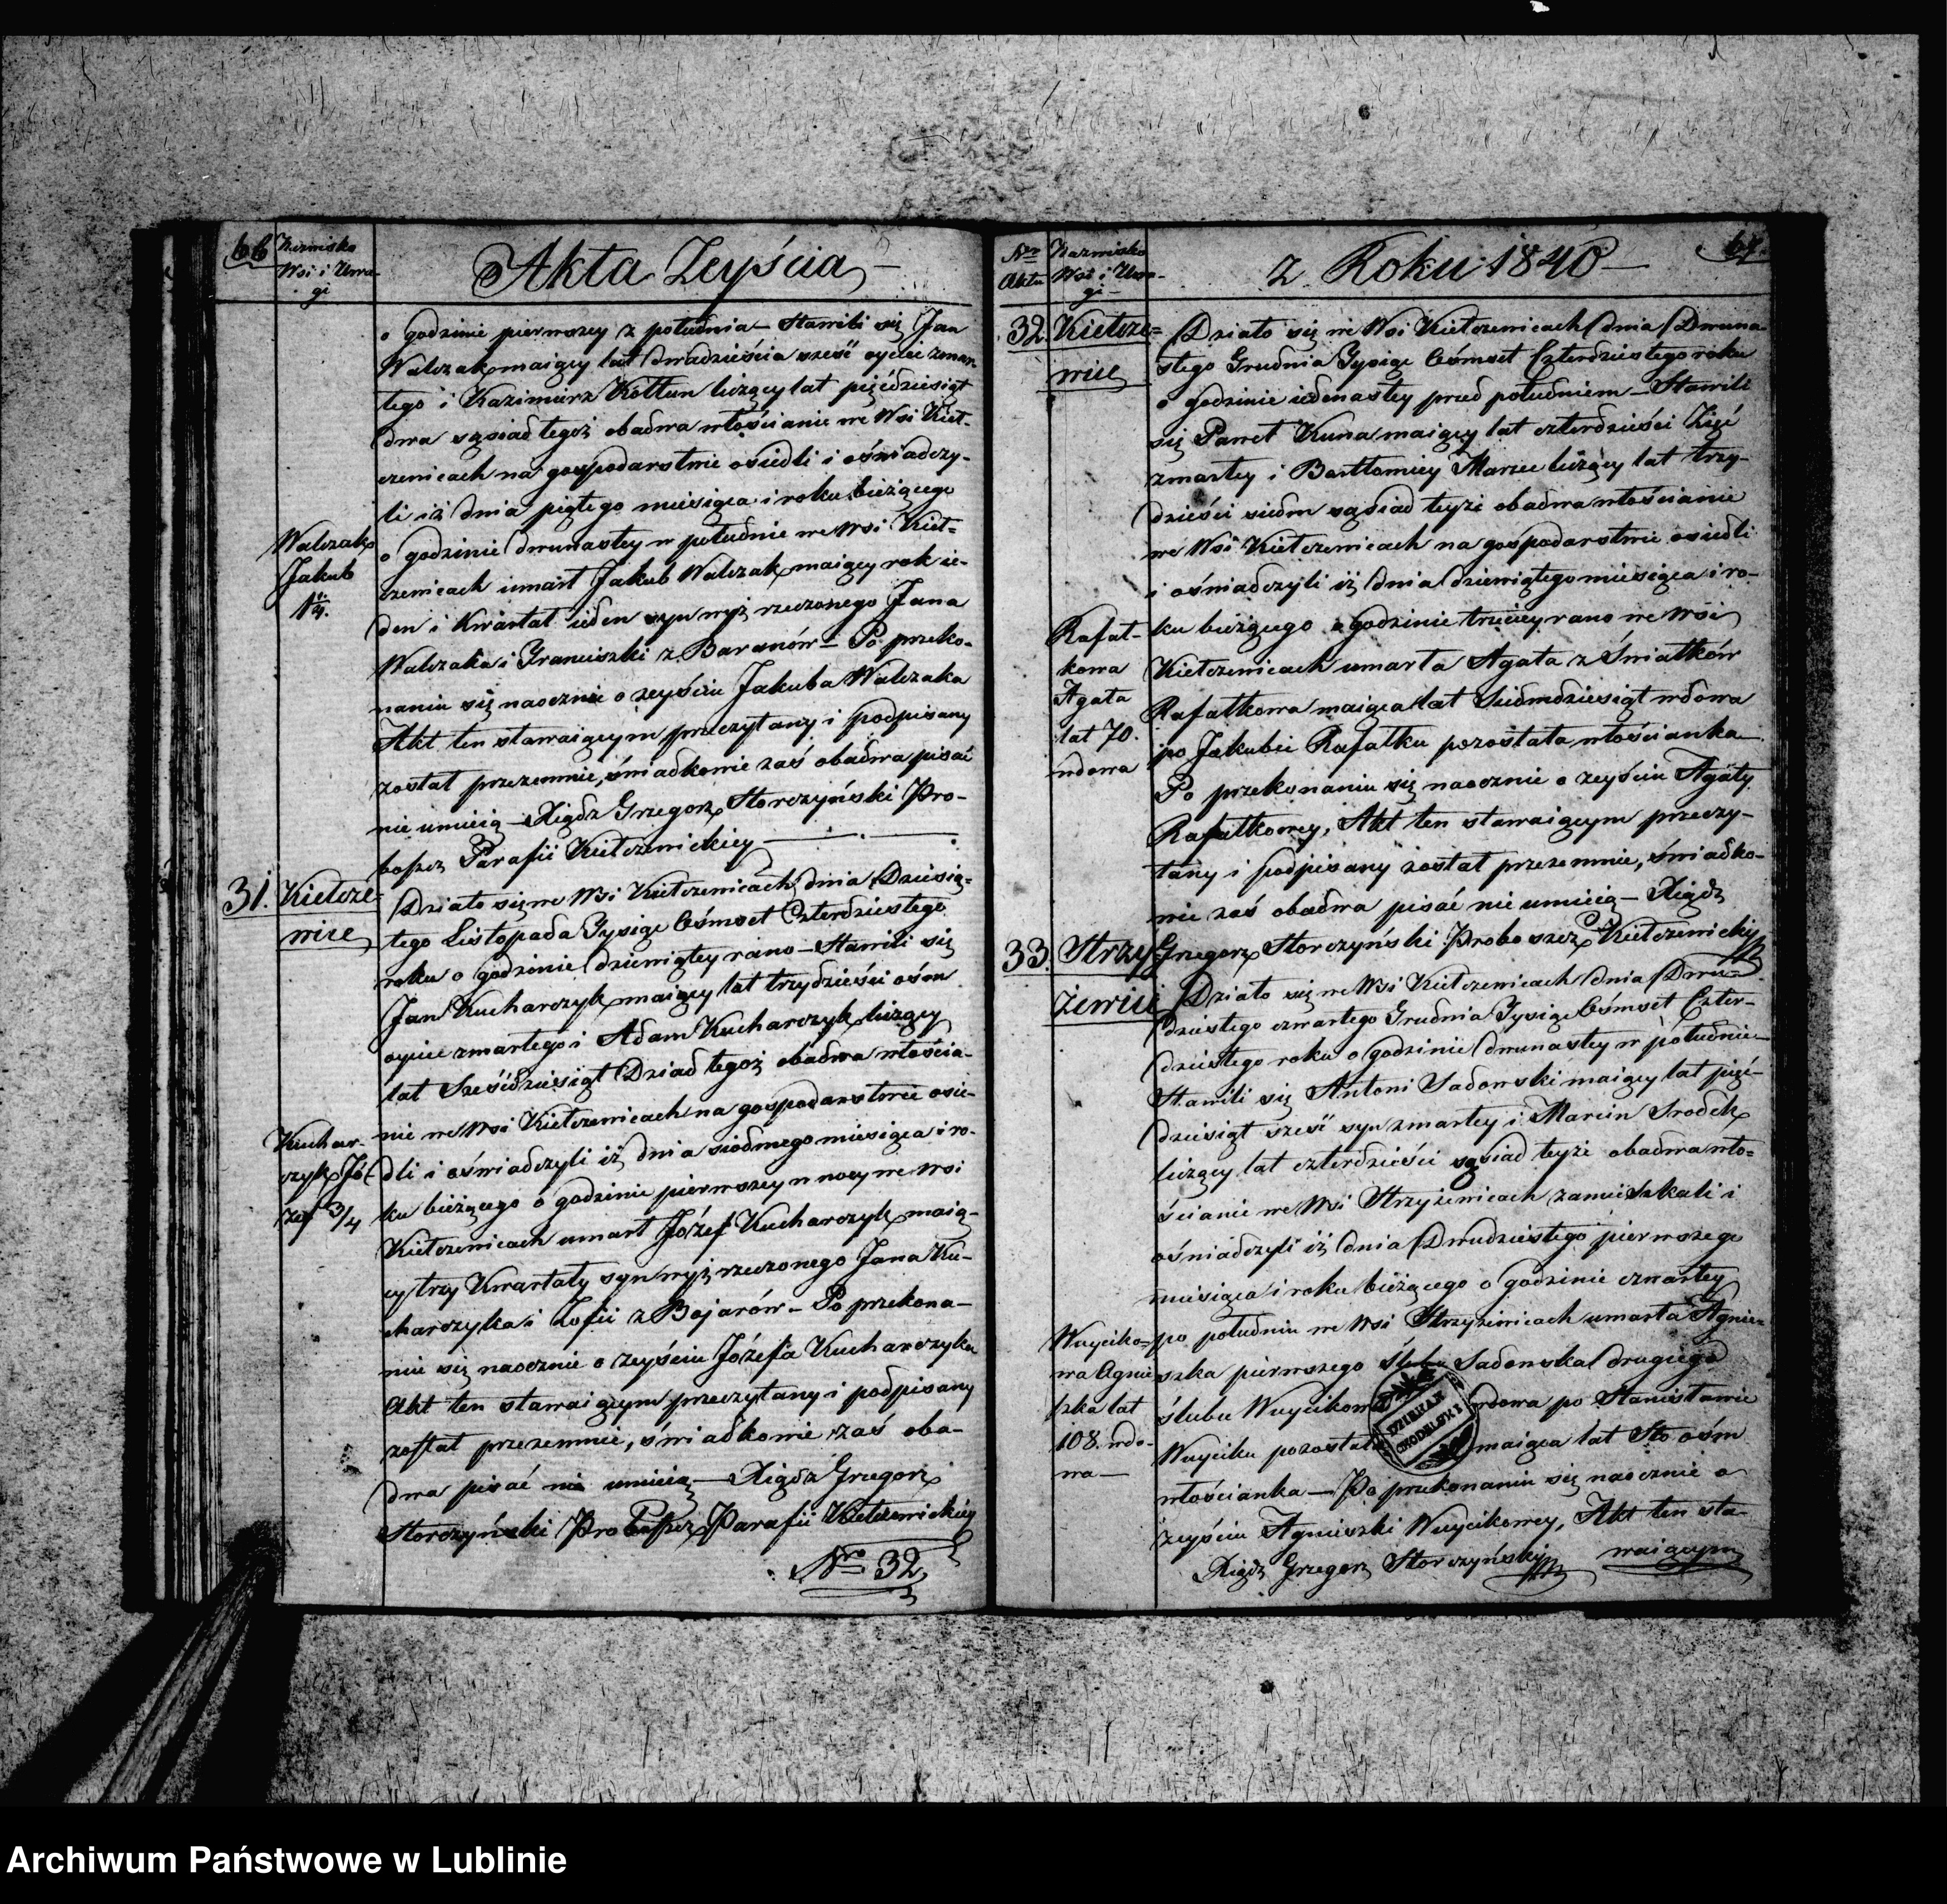 66
Nazwisko
Wsi i Uwa-
gi
Akta Zeyścia
o godzinie pierwszey z południa – Stawili się Jan
Walczak maiący lat dwadzieścia sześć oyciec zmar-
łego i Kazimierz Kołtun liczący lat pięćdziesiąt
dwa sąsiad tegoż obadwa włościanie we Wsi Kieł-
czewicach na gospodarstwie osiedli i oświadczy-
li iż dnia piątego miesiąca i roku bieżącego
o godzinie dwunastey w południe we Wsi Kieł-
czewicach umarł Jakub Walczak maiący rok ie-
den i Kwartał ieden syn wyż rzeczonego Jana
Walczaka i Franciszki z Baranów – Po przeko-
naniu się naocznie o zeyściu Jakuba Walczaka
Akt ten stawaiącym przeczytany i podpisany
został przezemnie, świadkowie zaś obadwa pisać
nie umieią – Xiądz Grzegorz Storczyński Pro-
boszcz Parafii Kiełczewickiey
Walczak
Jakub
1 1/4.
31. Kiełcze-
wice
Działo się we Wsi Kiełczewicach dnia Dziesią-
tego Listopada Tysiąc Ośmset Czterdziestego
roku o godzinie dziewiątey rano – Stawili się
Jan Kucharczyk maiący lat trzydzieści ośm
oyciec zmarłego i Adam Kucharczyk liczący
lat Sześćdziesiąt Dziad tegoż obadwa włościa-
nie we Wsi Kiełczewicach na gospodarstwie osie-
dli i oświadczyli iż dnia siódmego miesiąca i ro-
ku bieżącego o godzinie pierwszey w nocy we Wsi
Kiełczewicach umarł Józef Kucharczyk maią-
cy trzy Kwartały syn wyż rzeczonego Jana Ku-
charczyka i Zofii z Bojarów – Po przekona-
niu się naocznie o zeyściu Józefa Kucharczyka
Akt ten stawaiącym przeczytany i podpisany
został przezemnie, świadkowie zaś oba-
dwa pisać nie umieią – Xiądz Grzegorz
Storczyński Proboszcz Parafii Kiełczewickiey
Kuchar-
czyk Jó-
zef 3/4
Nro 32
Nro
Aktu
Nazwisko
Wsi i Uwa-
gi
z Roku 1840
67.
32. Kiełcze-
wice
Działo się we Wsi Kiełczewicach dnia Dwuna-
stego Grudnia Tysiąc Ośmset Czterdziestego roku
o godzinie iedenastey przed południem – Stawili
się Paweł Kuna maiący lat czterdzieści Zięć
zmarłey i Bartłomiey Marzec liczący lat trzy-
dzieści siedm sąsiad teyże obadwa włościanie
we Wsi Kiełczewicach na gospodarstwie osiedli
i oświadczyli iż dnia dziewiątego miesiąca i ro-
ku bieżącego o godzinie trzeciey rano we Wsi
Kiełczewicach umarła Agata z Światków
Rafałkowa maiąca lat Siedmdziesiąt wdowa
po Jakubie Rafałku pozostała włościanka
Po przekonaniu się naocznie o zeyściu Agaty
Rafałkowey, Akt ten stawaiącym przeczy-
tany i podpisany został przezemnie, świadko-
wie zaś obadwa pisać nie umieią – Xiądz
Grzegorz Storczyński Proboszcz Kiełczewicki
Rafał-
kowa
Agata
lat 70.
wdowa
33. Strzy-
żewice
Działo się we Wsi Kiełczewicach dnia Dwu-
dziestego czwartego Grudnia Tysiąc Ośmset Czter-
dziestego roku o godzinie dwunastey w południe
Stawili się Antoni Sadowski maiący lat pięć-
dziesiąt sześć syn zmarłey i Marcin Srodek
liczący lat czterdzieści sąsiad teyże obadwa wło-
ścianie we Wsi Strzyżewicach zamieszkali i
oświadczyli iż dnia Dwudziestego pierwszego
miesiąca i roku bieżącego o godzinie czwartey
po południu we Wsi Strzyżewicach umarła Agnie-
szka pierwszego ślubu Sadowska drugiego
ślubu Wuycikowa wdowa po Stanisławie
Wuyciku pozostała maiąca lat Sto ośm
włościanka – Po przekonaniu się naocznie o
zeyściu Agnieszki Wuycikowey, Akt ten sta-
waiącym
Xiądz Grzegorz Storczyński
Wuyciko-
wa Agnie
szka lat
108. wdo-
wa
DZIEKAN
CHODELSKI
Archiwum Państwowe w Lublinie